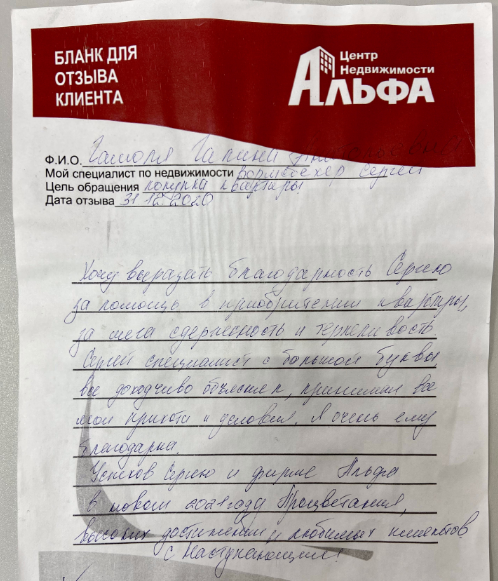 БЛАНК ДЛЯ
ОТЗЫВА
КЛИЕНТА
Центр
Недвижимости
АЛЬФА
Ф.И.О. Галина
Мой специалист по недвижимости Сергей
Цель обращения покупка квартиры
Дата отзыва 31.12.2020
Хочу выразить благодарность Сергею
за помощь в приобритении квартиры,
за его сдержанность и терпеливость.
Сергей специалист с большой буквы
все доходчиво объяснил, принимил все
мои прихоти и условия. Я очень ему
благодарна.
Успехов Сергею и фирме Альфа
в новом 2021 году Процветания,
высоких достижений и любимых клиентов
с Наступающим!